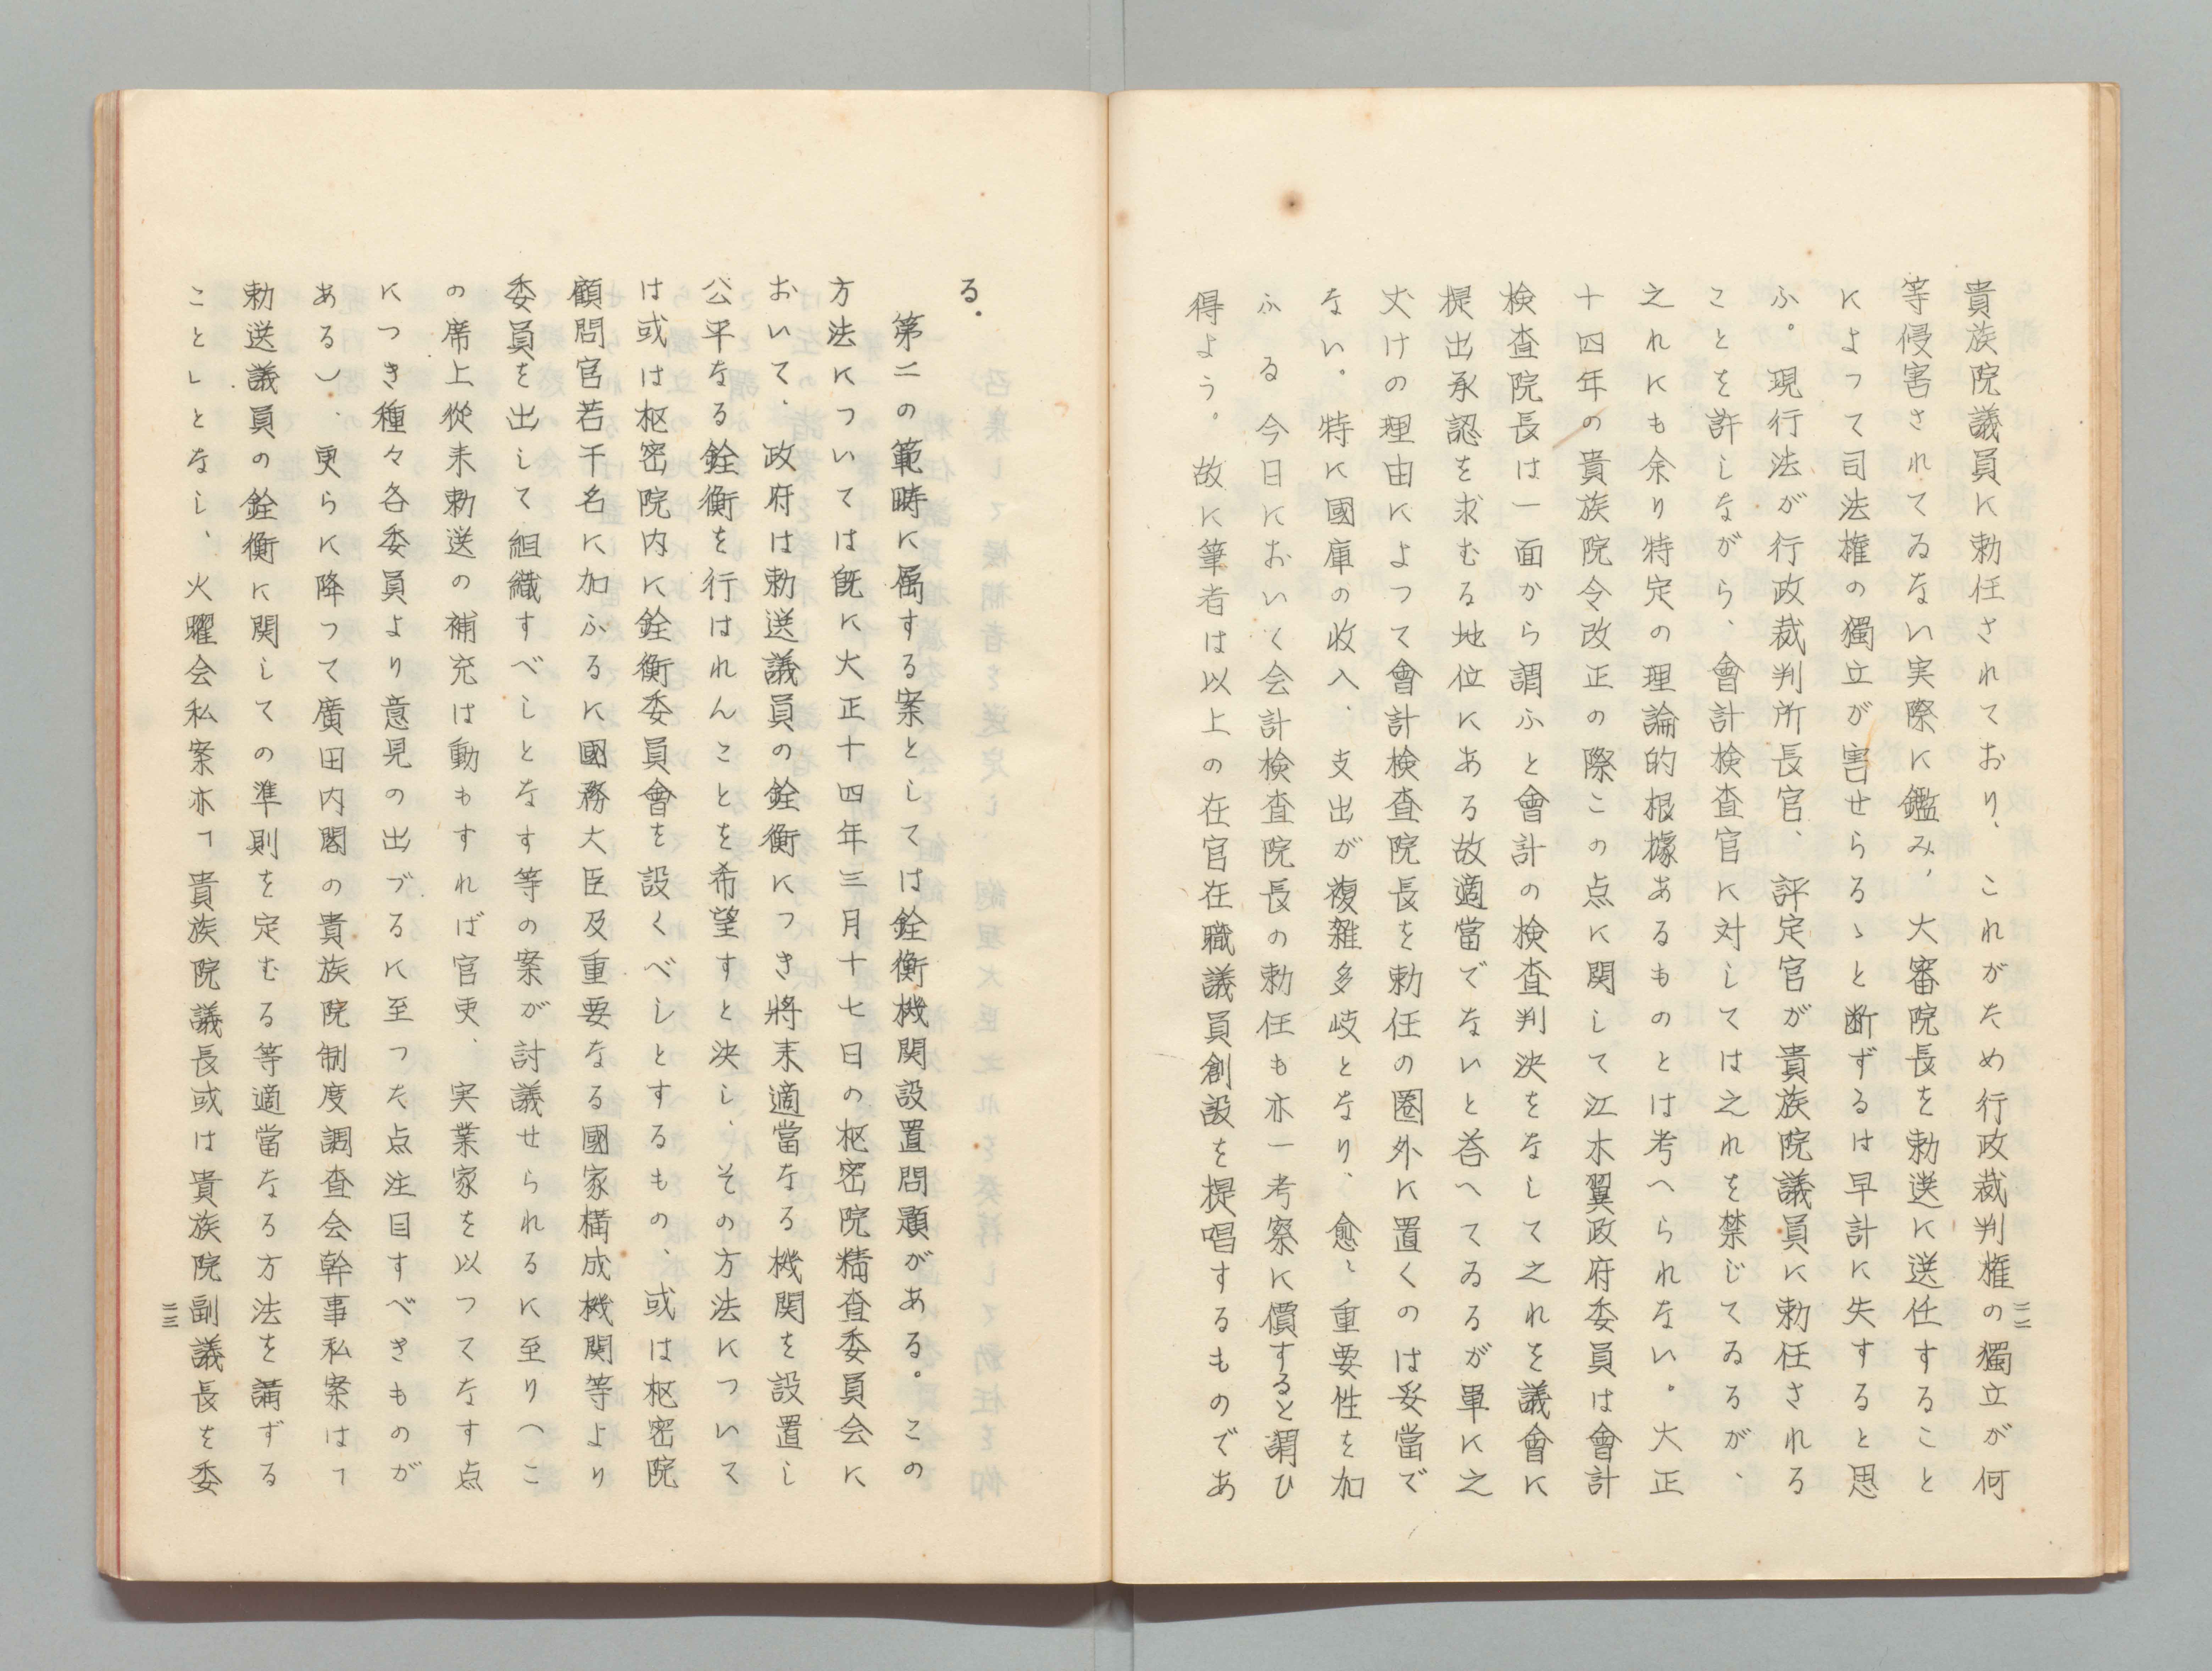 貴族院議員に勅任されており、これがため行政裁判権の獨立が何
等侵害されてゐない実際に鑑み、大審院長を勅選に選任すること
によつて司法権の獨立が害せらるゝと断ずるは早計に失すると思
ふ。現行法が行政裁判所長官、評定官が貴族院議員に勅任される
ことを許しながら、會計検査官に対しては之れを禁じてゐるが、
之れにも余り特定の理論的根據あるものとは考へられない。大正
十四年の貴族院令改正の際この点に関して江木翼政府委員は會計
検査院長は一面から謂ふと會計の検査判決をなして之れを議會に
提出承認を求むる地位にある故適當でないと答へてゐるが単に之
丈けの理由によつて會計検査院長を勅任の圏外に置くのは妥當で
ない。特に國庫の收入、支出が複雑多岐となり、愈〻重要性を加
ふる今日において会計検査院長の勅任も亦一考察に價すると謂ひ
得よう。故に筆者は以上の在官在職議員創設を提唱するものであ
二二
る。
第二の範疇に属する案としては銓衡機関設置問題がある。この
方法については既に大正十四年三月十七日の枢密院精査委員会に
おいて、政府は勅選議員の銓衡につき將来適當なる機関を設置し
公平なる銓衡を行はれんことを希望すと決し、その方法について
は或は枢密院内に銓衡委員會を設くべしとするもの、或は枢密院
顧問官若干名に加ふるに國務大臣及重要なる國家構成機関等より
委員を出して組織すべしとなす等の案が討議せられるに至り（こ
の席上從来勅選の補充は動もすれば官吏、実業家を以つてなす点
につき種々各委員より意見の出づるに至つた点注目すべきものが
ある）、更らに降つて廣田内閣の貴族院制度調査会幹事私案は「
勅選議員の銓衡に関しての準則を定むる等適當なる方法を講ずる
こと」となし、火曜会私案亦「貴族院議長或は貴族院副議長を委
二三